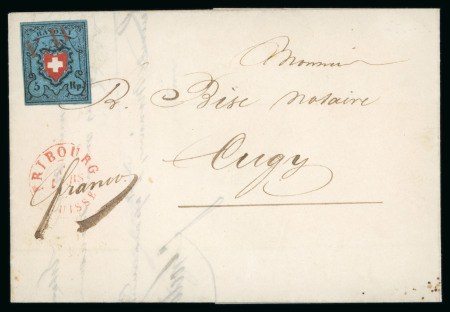 RAYON I
5 Rp.
Monsieur
R. Bise notaire
Cugy
FRIBOURG
SUISSE
franco